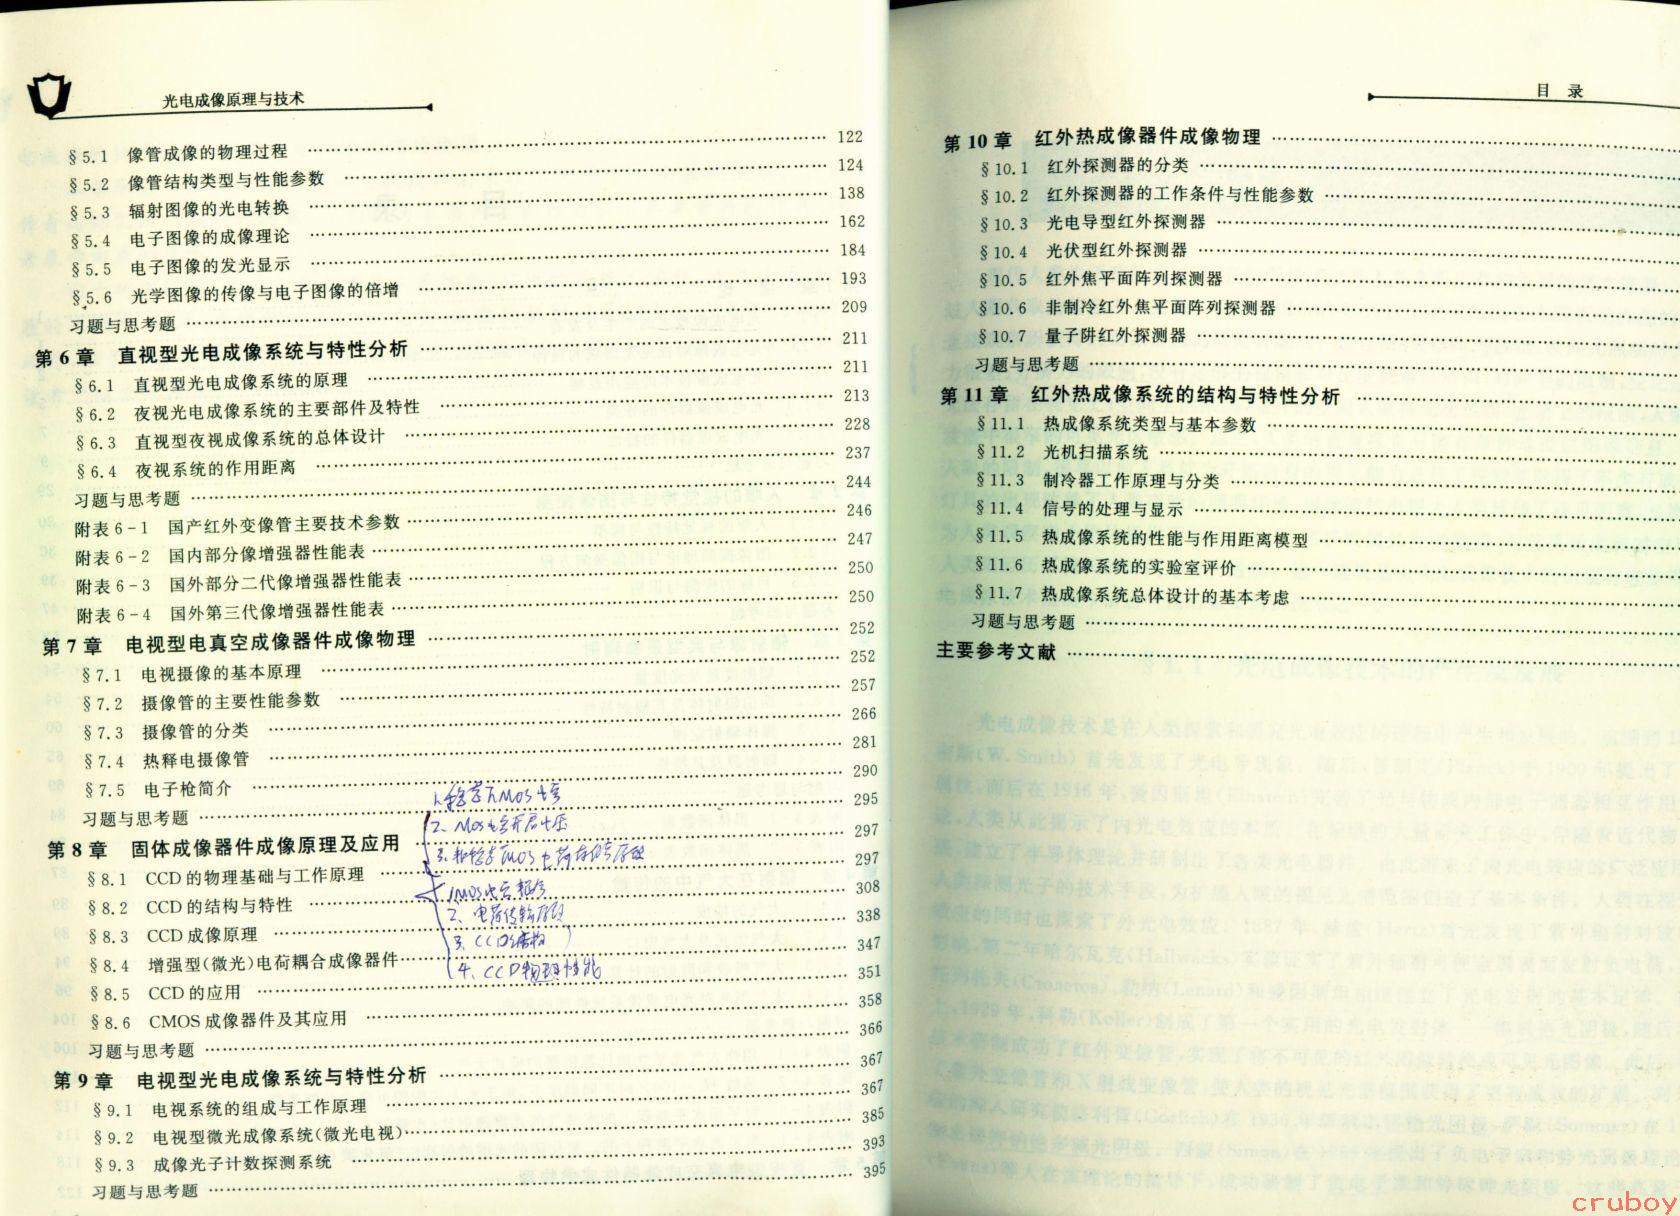 光电成像原理与技术
§5.1 像管成像的物理过程 122
§5.2 像管结构类型与性能参数 124
§5.3 辐射图像的光电转换 138
§5.4 电子图像的成像理论 162
§5.5 电子图像的发光显示 184
§5.6 光学图像的传像与电子图像的倍增 193
习题与思考题 209
第6章 直视型光电成像系统与特性分析 211
§6.1 直视型光电成像系统的原理 211
§6.2 夜视光电成像系统的主要部件及特性 213
§6.3 直视型夜视成像系统的总体设计 228
§6.4 夜视系统的作用距离 237
习题与思考题 244
附表6-1 国产红外变像管主要技术参数 246
附表6-2 国内部分像增强器性能表 247
附表6-3 国外部分二代像增强器性能表 250
附表6-4 国外第三代像增强器性能表 250
第7章 电视型电真空成像器件成像物理 252
§7.1 电视摄像的基本原理 252
§7.2 摄像管的主要性能参数 257
§7.3 摄像管的分类 266
§7.4 热释电摄像管 281
§7.5 电子枪简介 290
习题与思考题 295
第8章 固体成像器件成像原理及应用 297
§8.1 CCD的物理基础与工作原理 297
§8.2 CCD的结构与特性 308
§8.3 CCD成像原理 338
§8.4 增强型(微光)电荷耦合成像器件 347
§8.5 CCD的应用 351
§8.6 CMOS成像器件及其应用 358
习题与思考题 366
第9章 电视型光电成像系统与特性分析 367
§9.1 电视系统的组成与工作原理 367
§9.2 电视型微光成像系统(微光电视) 385
§9.3 成像光子计数探测系统 393
习题与思考题 395
2、MOS电容开启电压
1、MOS电容耦合
2、电荷传输原理
3、CCD结构
4、CCD物理性能
目 录
第10章 红外热成像器件成像物理
§10.1 红外探测器的分类
§10.2 红外探测器的工作条件与性能参数
§10.3 光电导型红外探测器
§10.4 光伏型红外探测器
§10.5 红外焦平面阵列探测器
§10.6 非制冷红外焦平面阵列探测器
§10.7 量子阱红外探测器
习题与思考题
第11章 红外热成像系统的结构与特性分析
§11.1 热成像系统类型与基本参数
§11.2 光机扫描系统
§11.3 制冷器工作原理与分类
§11.4 信号的处理与显示
§11.5 热成像系统的性能与作用距离模型
§11.6 热成像系统的实验室评价
§11.7 热成像系统总体设计的基本考虑
习题与思考题
主要参考文献
cruboy